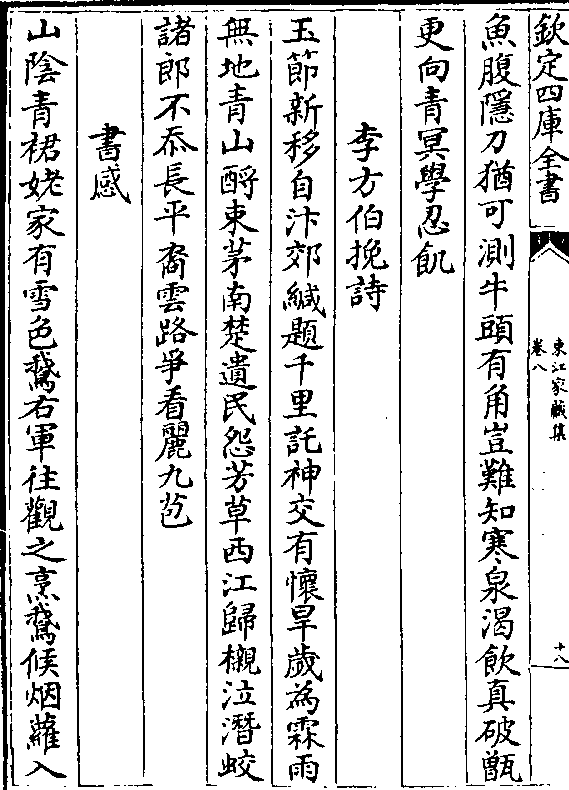 欽定四庫全書
東江家藏集
卷八
十八
魚腹隱刀猶可測牛頭有角豈難知寒泉渴飲真破甑
更向青冥學忍飢
李方伯挽詩
玉節新移自汴郊緘題千里託神交有懷旱歲為霖雨
無地青山酹束茅南楚遺民怨芳草西江歸櫬泣潛蛟
諸郎不忝長平裔雲路爭看麗九苞
書感
山陰青裙姥家有雪色鵞右軍往觀之烹鵞候烟蘿入